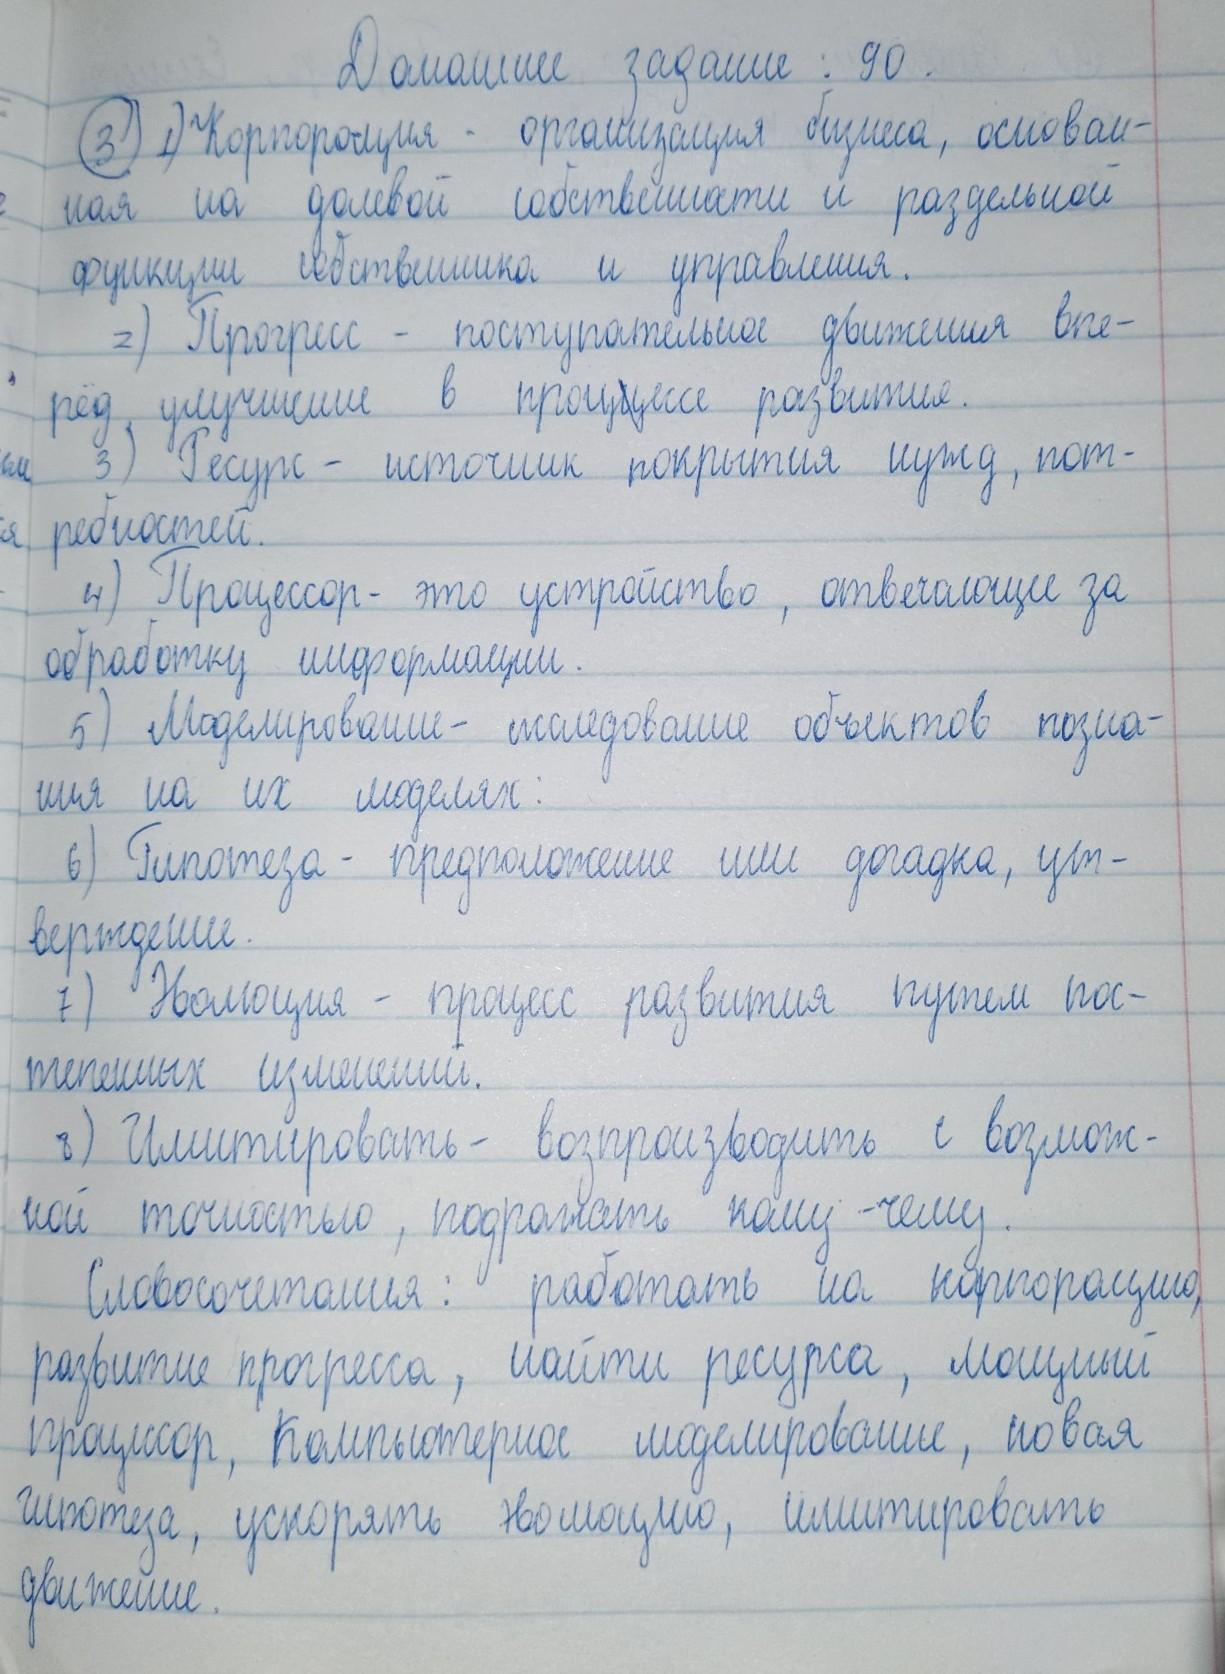 Домашнее задание: 90.
3 1) Корпорация - организация бизнеса, основан-
ная на долевой собственности и раздельной
функции собственника и управления.
2) Прогресс - поступательное движения впе-
рёд, улучшение в процессе развития.
3) Ресурс - источник покрытия нужд, пот-
ребностей.
4) Процессор - это устройство, отвечающие за
обработку информации.
5) Моделирование - исследование объектов позна-
ния на их моделях:
6) Гипотеза - предположение или догадка, ут-
верждение.
7) Эволюция - процесс развития путем пос-
тепенных изменений.
8) Имитировать - возпроизводить с возмож-
ной точностью, подражать кому-чему.
Словосочетания: работать на корпорацию,
развитие прогресса, найти ресурса, мощный
процессор, компьютерное моделирование, новая
гипотеза, ускорять эволюцию, имитировать
движение.